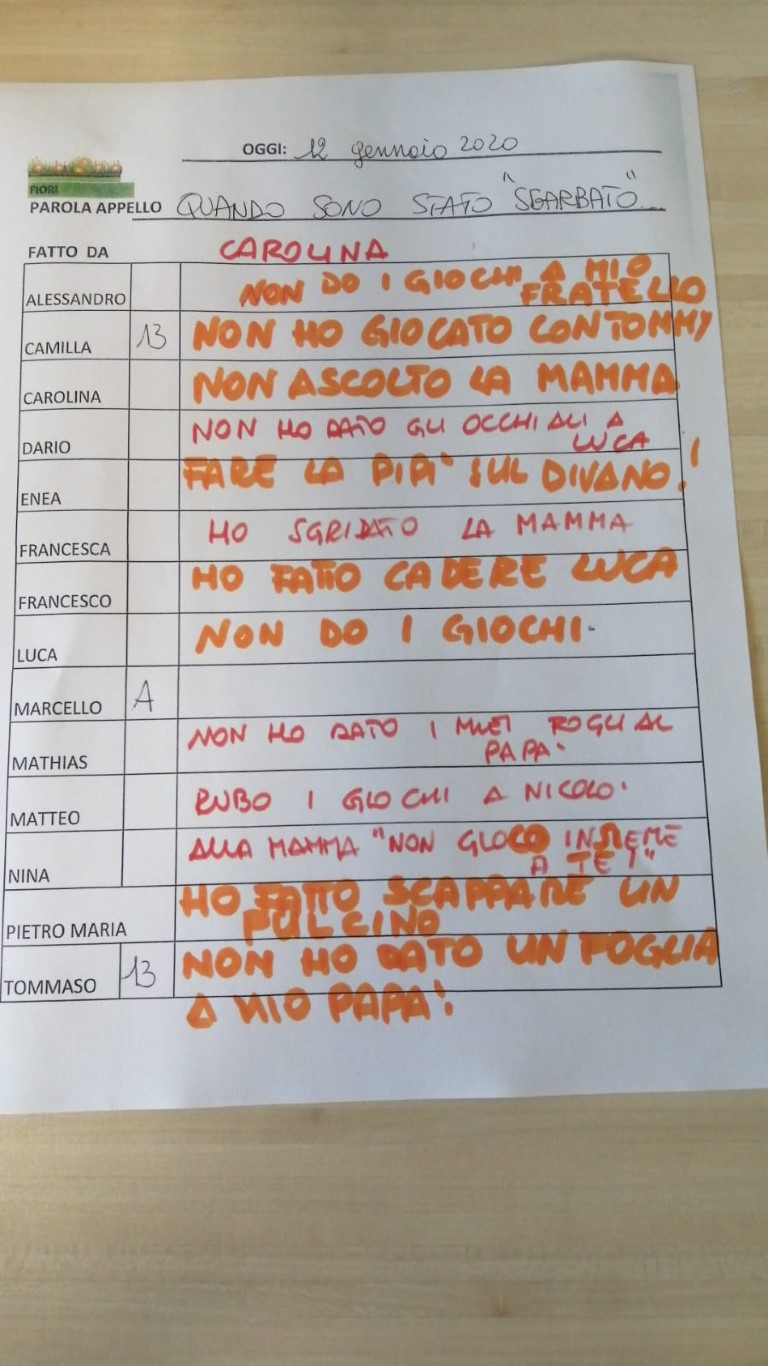 OGGI: 12 gennaio 2020
FIORI
PAROLA APPELLO QUANDO SONO STATO "SGARBATO"...
FATTO DA CAROLINA
ALESSANDRO NON DO I GIOCHI A MIO
FRATELLO
CAMILLA 13 NON HO GIOCATO CON TOMMY
CAROLINA NON ASCOLTO LA MAMMA
DARIO NON HO DATO GLI OCCHIALI A
LUCA
ENEA FARE LA PIPI' SUL DIVANO!
FRANCESCA HO SGRIDATO LA MAMMA
FRANCESCO HO FATTO CADERE LUCA
LUCA NON DO I GIOCHI.
MARCELLO A
MATHIAS NON HO DATO I MIEI FOGLI AL
PAPA'
MATTEO RUBO I GIOCHI A NICOLO'
NINA ALLA MAMMA "NON GIOCO INSIEME
A TE!"
PIETRO MARIA HO FATTO SCAPPARE UN
PULCINO
TOMMASO 13 NON HO DATO UN FOGLIA
A MIO PAPA'.